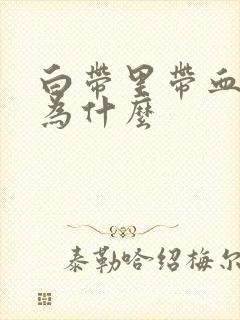 白带里带血
为什麼
泰勒哈绍梅尔